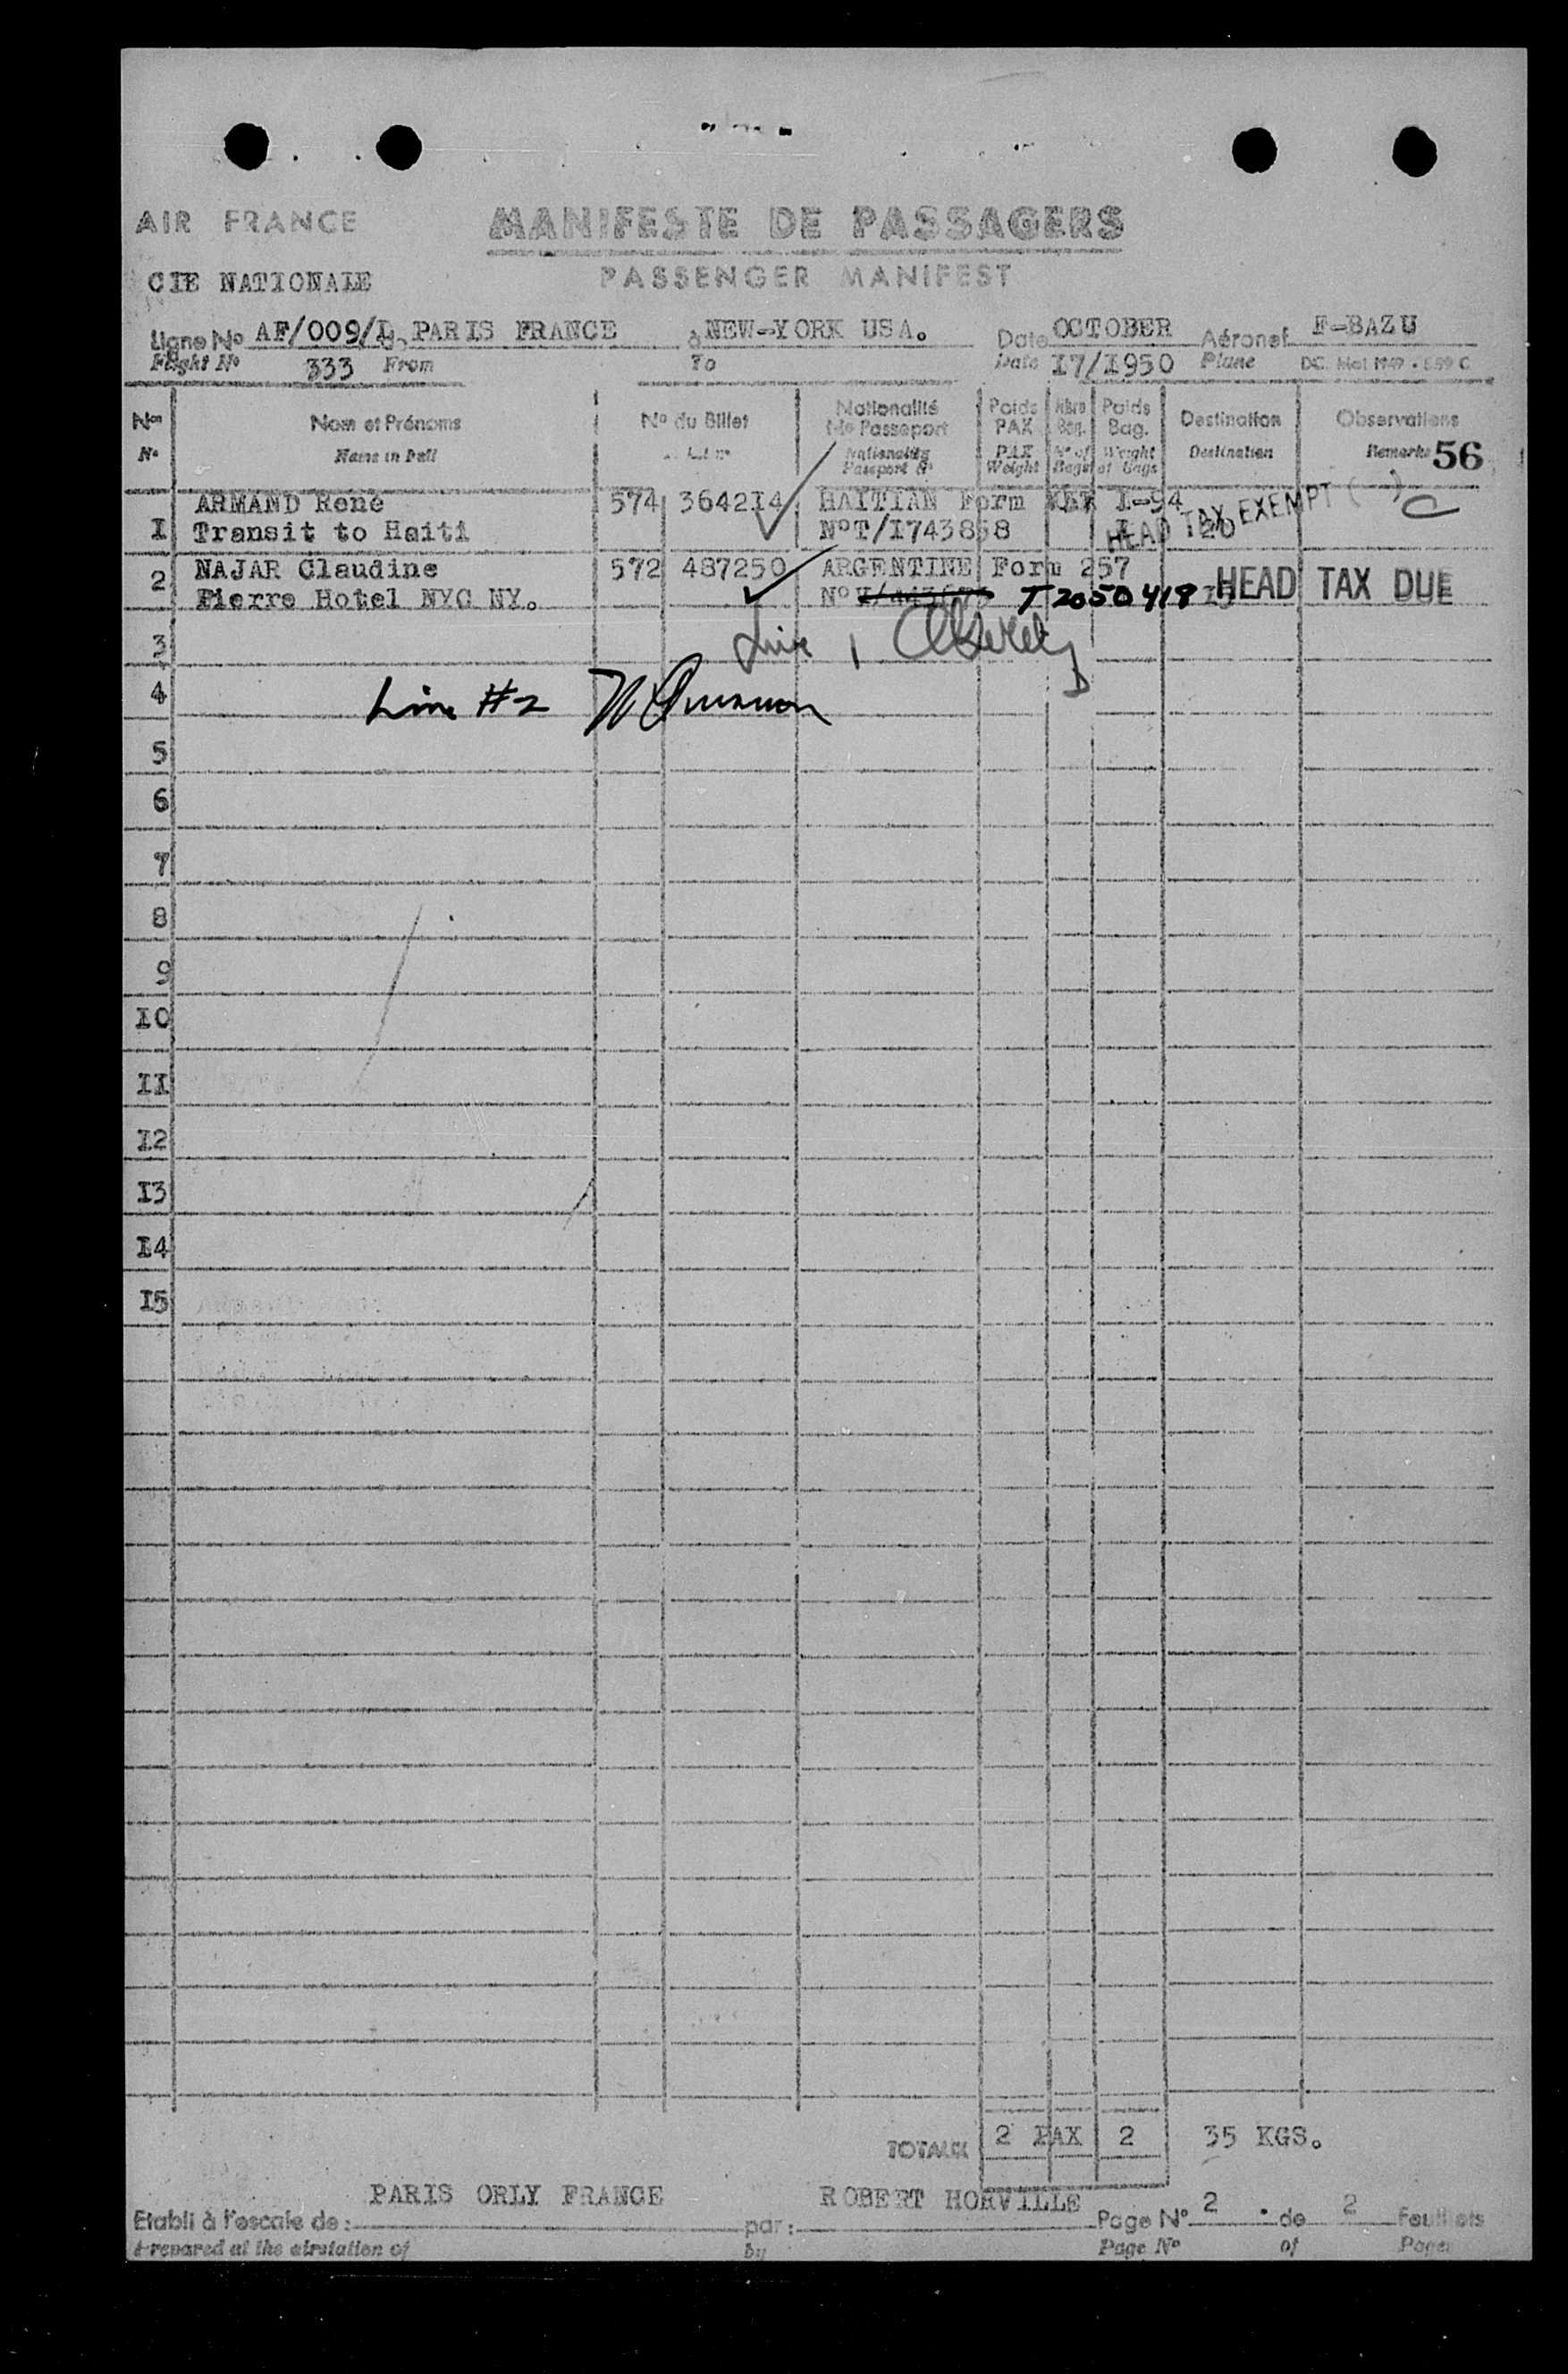 AIR FRANCE
MANIFESTE DE PASSAGERS
CIE NATIONALE
PASSENGER MANIFEST
Ligne No AF/009/L PARIS FRANCE à NEW-YORK USA. Date OCTOBER Aéronef F-BAZU
Flight No 333 From To Date 17/1950 Plane
Nos Nom et Prénoms No du Billet Nationalité No Passeport Poids PAX Nbre Bag. Poids Bag. Destination Observations
No Name in full Nationality Passport No PAX Weight No of Bags Weight of Bags Destination Remarks 56
1 ARMAND René 574 364214 HAITIAN Form I-94 HEAD TAX EXEMPT ( )
Transit to Haiti NoT/1743858 1 20
2 NAJAR Claudine 572 487250 ARGENTINE Form 257 HEAD TAX DUE
Pierre Hotel NYC NY. No T2050418
3 Line 1
4 Line #2
5
6
7
8
9
10
11
12
13
14
15
TOTAUX 2 PAX 2 35 KGS.
PARIS ORLY FRANCE ROBERT HORVILLE
Etabli à l'escale de: par: Page No 2 de 2 Feuillets
Prepared at the airstation of by Page No of Pages